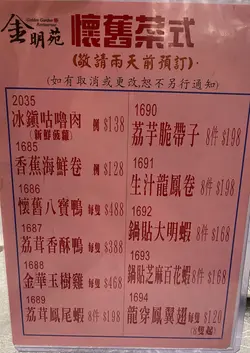 金明苑
懷舊菜式
(敬請雨天前預訂)
(如有取消或更改恕不另行通知)
2035
冰鎮咕嚕肉 例 $138
(新鮮菠蘿)
1685
香蕉海鮮卷 例 $128
1686
懷舊八寶鴨 每隻 $488
1687
荔茸香酥鴨 每隻 $388
1688
金華玉樹雞 每隻 $468
1689
荔茸鳳尾蝦 8件 $198
1690
荔芋脆帶子 8件 $198
1691
生汁龍鳳卷 8件 $198
1692
鍋貼大明蝦 8件 $168
1693
鍋貼芝麻百花蝦 8件 $168
1694
龍穿鳳翼翅 每隻 $120